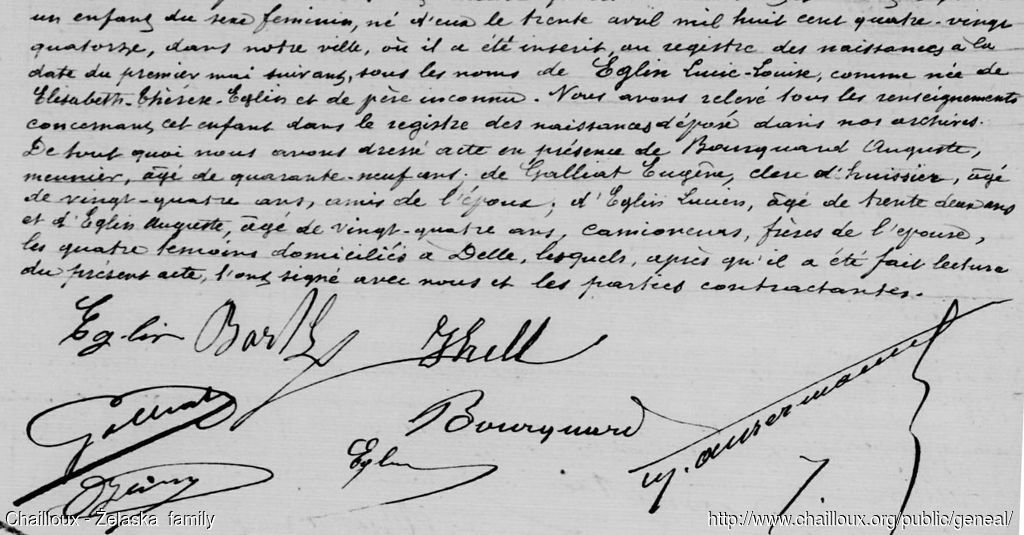 un enfant du sexe féminin, né d'eux le trente avril mil huit cent quatre-vingt
quatorze, dans notre ville, où il a été inscrit, au registre des naissances à la
date du premier mai suivant, sous les noms de Eglin Lucie-Louise, comme née de
Elisabeth-Thérèse-Eglin et de père inconnu. Nous avons relevé tous les renseignements
concernant cet enfant dans le registre des naissances déposé dans nos archives.
De tout quoi nous avons dressé acte en présence de Bourquard Auguste,
meunier, âgé de quarante-neuf ans. de Galliat Eugène, clerc d'huissier, âgé
de vingt-quatre ans, amis de l'époux; d'Eglin Lucien, âgé de trente deux ans
et d'Eglin Auguste, âgé de vingt-quatre ans, camionneurs, frères de l'épouse,
les quatre témoins domiciliés à Delle, lesquels, après qu'il a été fait lecture
du présent acte, l'ont signé avec nous et les parties contractantes.
Eglin
Galliat
Bourquard
Eglin
Chailloux - Zelaska family
http://www.chailloux.org/public/geneal/